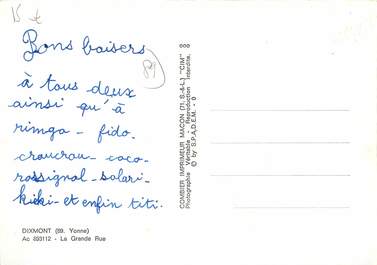 15 €
Bons baisers
89
à tous deux
ainsi qu'à
rimga - fido.
croucrou - coco.
rossignol - solari -
kiki - et enfin titi.
DIXMONT (89. Yonne)
Ac 893112 - La Grande Rue
COMBIER IMPRIMEUR MACON (71. S.-&-L.) "CIM"
Photographie Véritable - Reproduction Interdite.
© by S.P.A.D.E.M. - 0